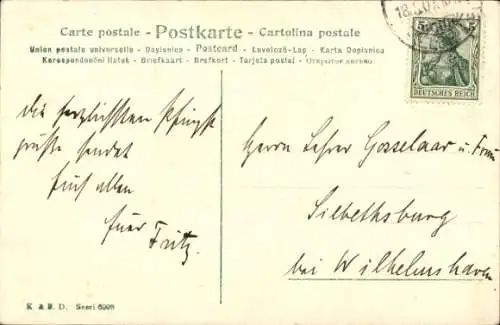 Carte postale - Postkarte - Cartolina postale
Union postale universelle - Dopisnica - Postcard - Levelező-Lap - Karta Dopisnica
Korespondenční lístek - Briefkaart - Brefkort - Tarjeta postal - Открытое письмо
5 5
DEUTSCHES REICH
Die herzlichsten Pfingst
grüße sendet
Euch allen
Euer Fritz.
Herrn Lehrer Gosselaar u. Frau
Silbethsburg
bei Wilhelmshaven
K & B. D. Seeri 6908